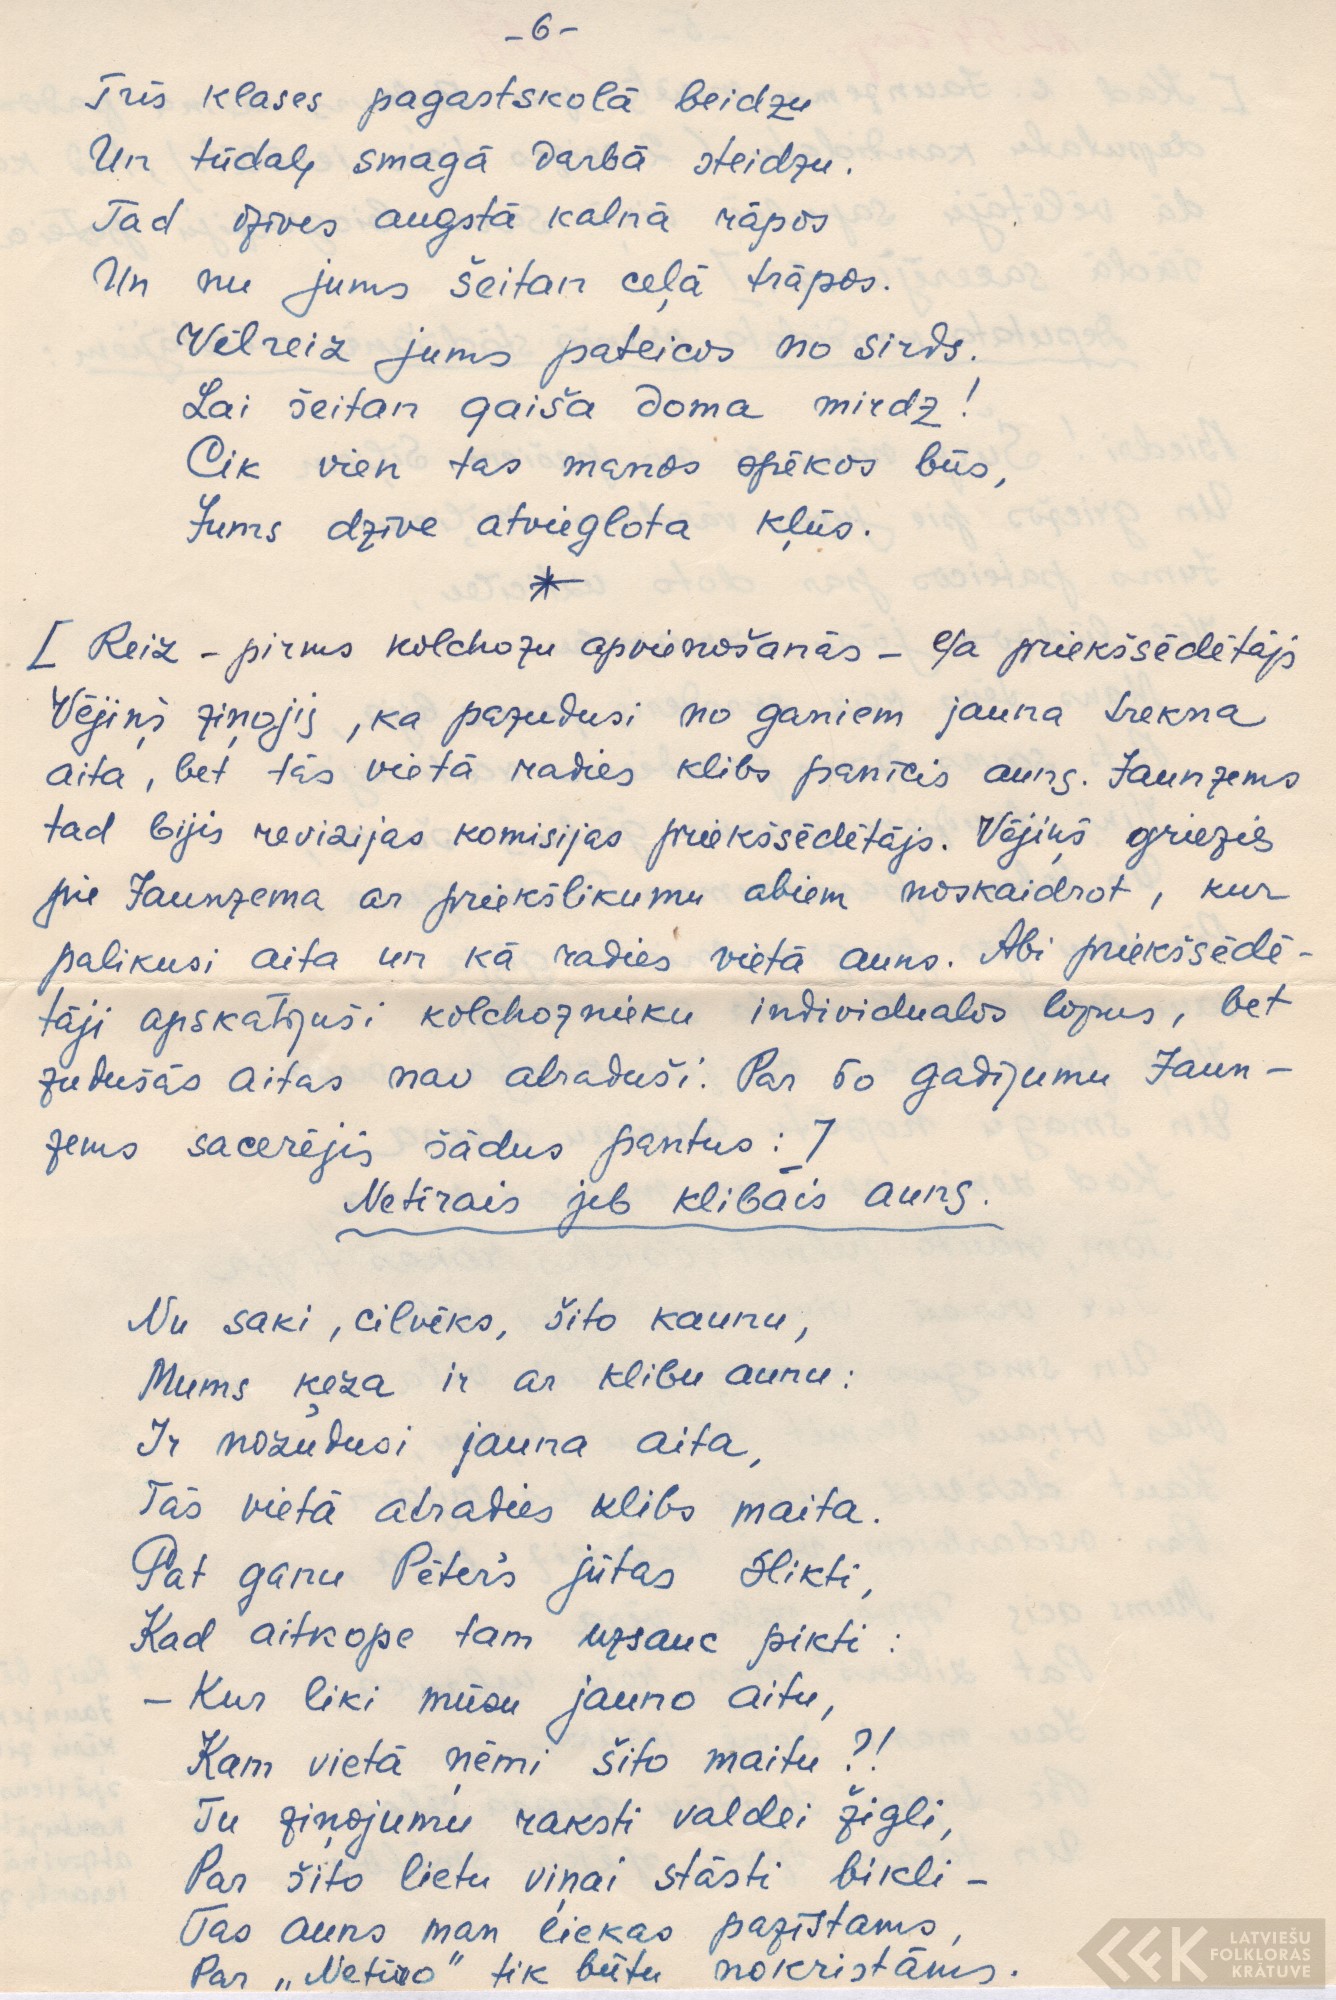 -6-
Trīs klases pagastskolā beidzu
Un tūdaļ smagā darbā steidzu.
Tad dzīves augstā kalnā rāpos
Un nu jums šeitan ceļā trāpos.
Vēlreiz jums pateicos no sirds.
Lai šeitan gaiša doma mirdz!
Cik vien tas manos spēkos būs,
Jums dzīve atvieglota kļūs.
*
[ Reiz - pirms kolchozu apvienošanās - c/a priekšsēdētājs
Vējiņš ziņojis, ka pazudusi no ganiem jauna trekna
aita, bet tās vietā radies klibs panīcis auns. Jaunzems
tad bijis revizijas komisijas priekšsēdētājs. Vējiņš griezies
pie Jaunzema ar priekšlikumu abiem noskaidrot, kur
palikusi aita un kā radies vietā auns. Abi priekšsēdē-
tāji apskatījuši kolchoznieku individualos lopus, bet
zudušās aitas nav atraduši. Par šo gadījumu Jaun-
zems sacerējis šādus pantus: ]
Netīrais jeb klibais auns.
Nu saki, cilvēks, šito kaunu,
Mums ķeza ir ar klibu aunu:
Ir nozudusi jauna aita,
Tās vietā atradies klibs maita.
Pat ganu Pēter's jūtas slikti,
Kad aitkope tam uzsauc pikti:
- Kur liki mūsu jauno aitu,
Kam vietā ņēmi šito maitu?!
Tu ziņojumu raksti valdei žigli,
Par šito lietu viņai stāsti bikli -
Tas auns man liekas pazīstams,
Par „Netīro" tik būtu nokristāms.
LATVIEŠU
FOLKLORAS
KRĀTUVE